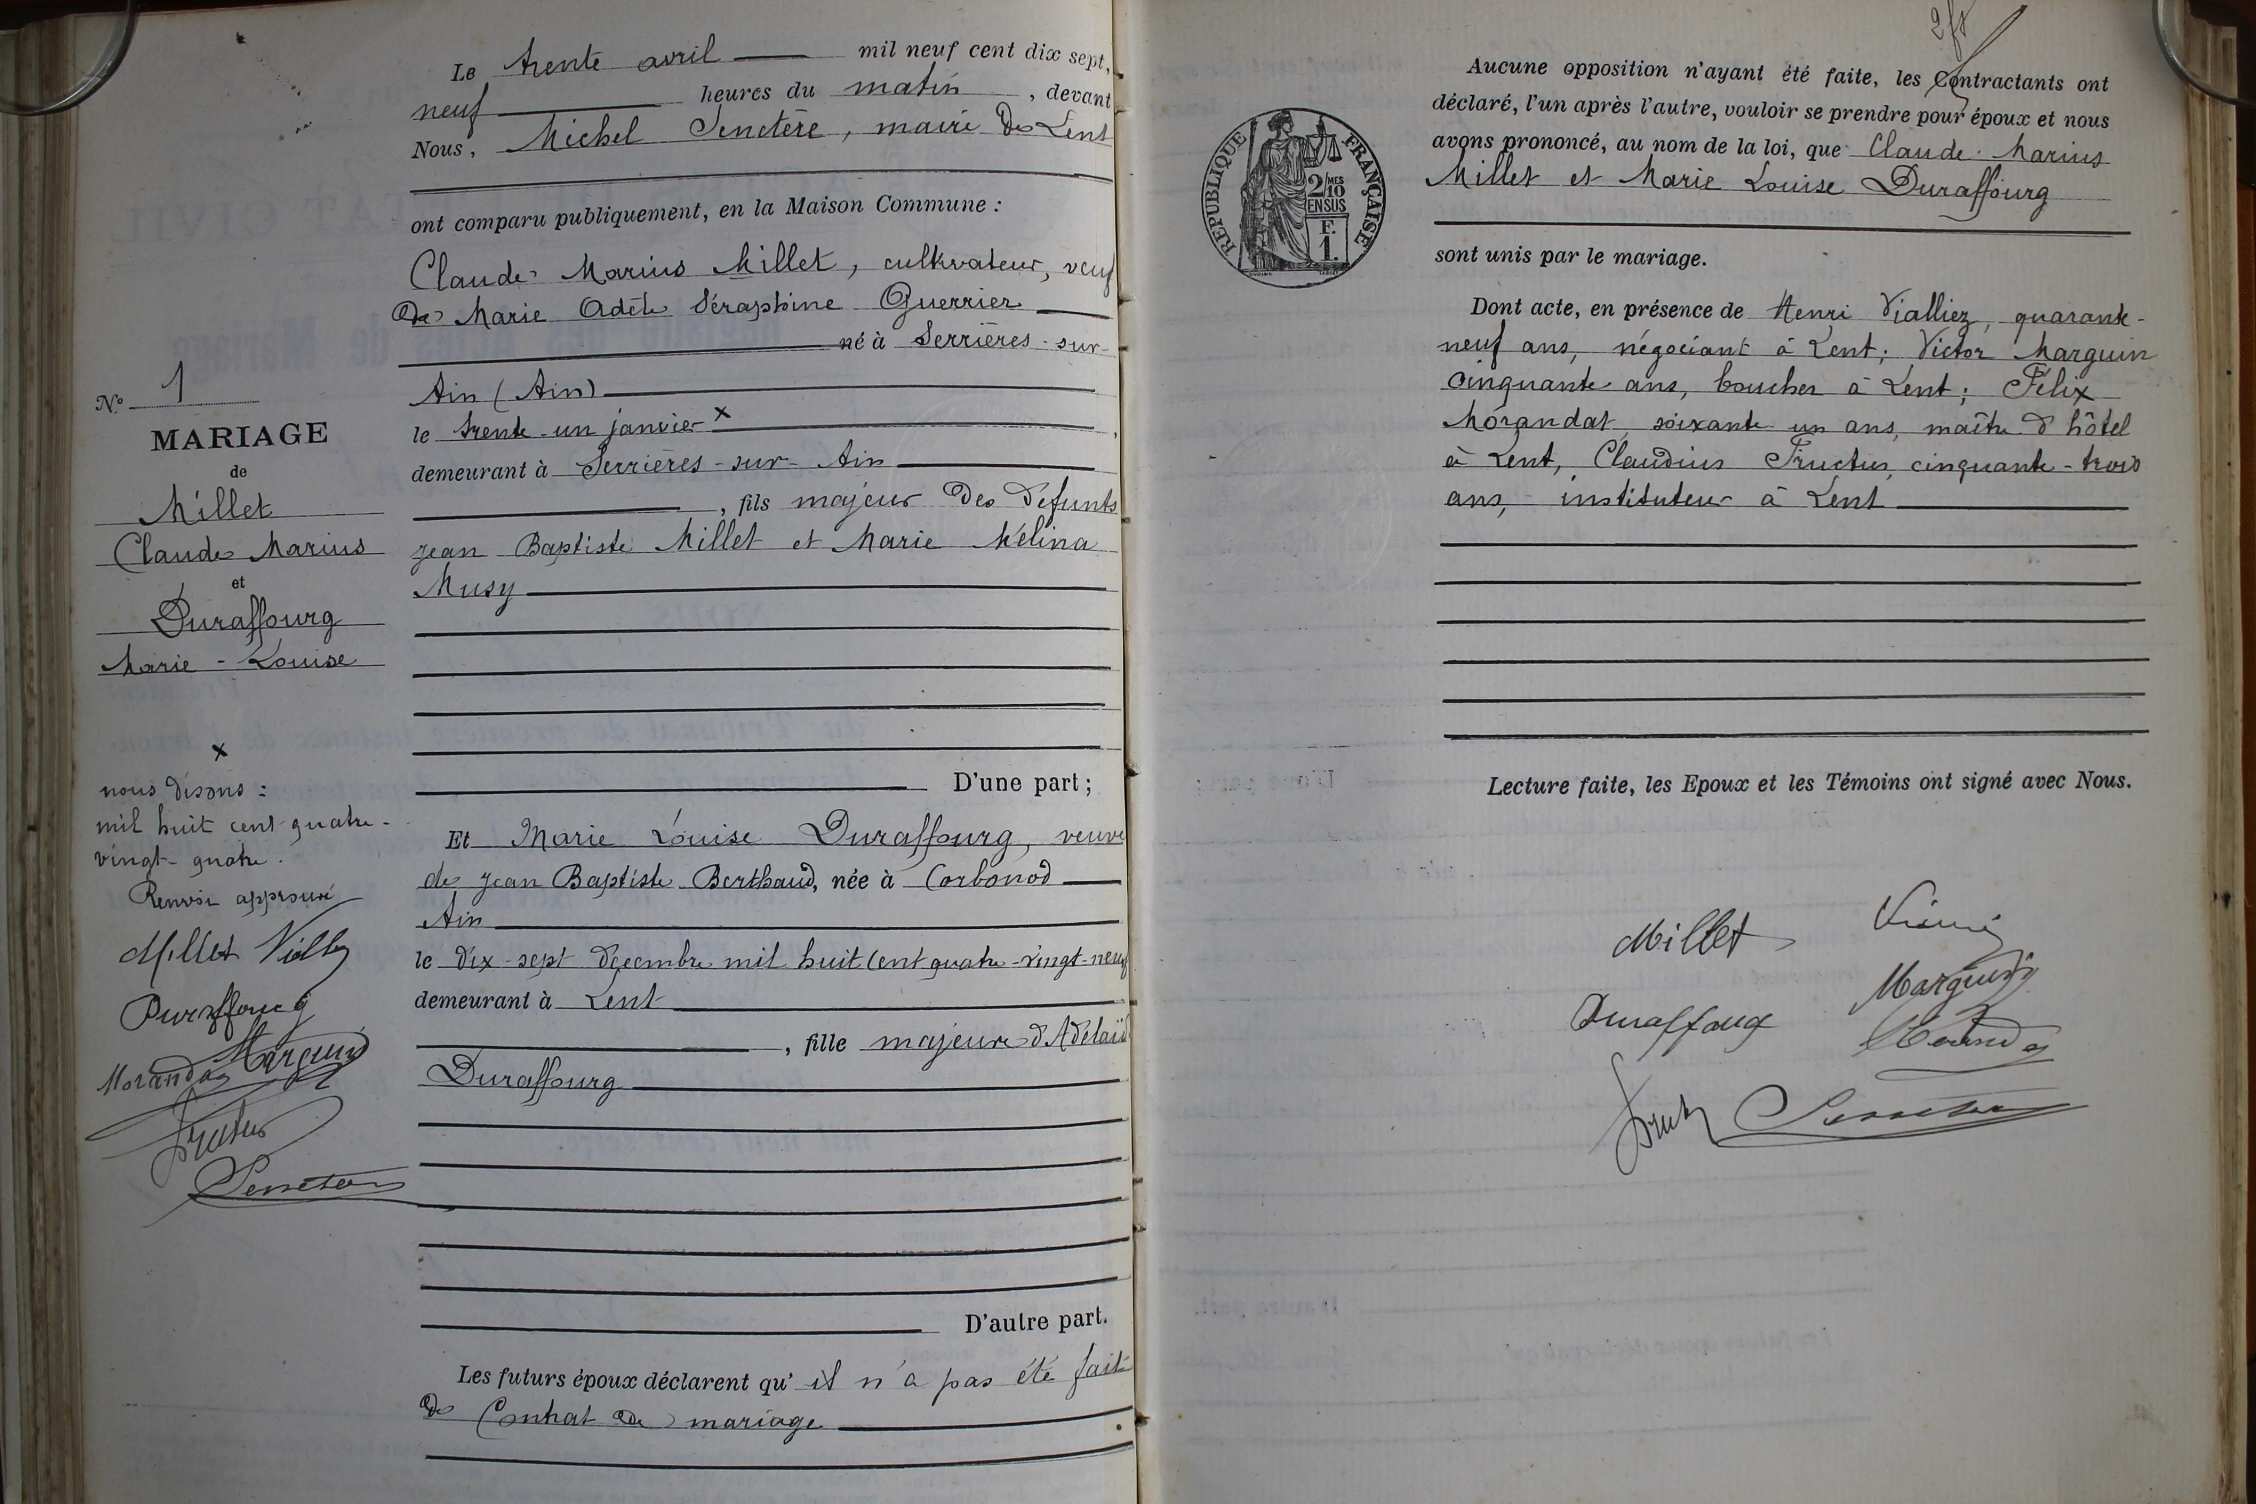 Le trente avril mil neuf cent dix sept,
neuf heures du matin, devant
Nous, Michel Senetère, maire de Lent
ont comparu publiquement, en la Maison Commune :
Claude Marius Millet, cultivateur, veuf
de Marie Adèle Séraphine Guerrier
né à Serrières-sur-
Ain (Ain)
le trente-un janvier x
demeurant à Serrières-sur-Ain
, fils majeur des défunts
Jean Baptiste Millet et Marie Mélina
Musy
D'une part ;
Et Marie Louise Duraffourg, veuve
de Jean Baptiste Berthaud, née à Corbonod
Ain
le dix-sept décembre mil huit cent quatre-vingt-neuf
demeurant à Lent
, fille majeure d'Adelaïd
Duraffourg
D'autre part.
Les futurs époux déclarent qu'il n'a pas été fait
de Contrat de mariage
N° 1
MARIAGE
de
Millet
Claude Marius
et
Duraffourg
Marie-Louise
x
nous disons :
mil huit cent quatre-
vingt-quatre.
Renvoi approuvé
Millet
Duraffourg
Marguin
Morandat
Fructus
Senetère
2 fs
REPUBLIQUE FRANÇAISE
2/10 MES
EN SUS
F.
1.
Aucune opposition n'ayant été faite, les Contractants ont
déclaré, l'un après l'autre, vouloir se prendre pour époux et nous
avons prononcé, au nom de la loi, que Claude Marius
Millet et Marie Louise Duraffourg
sont unis par le mariage.
Dont acte, en présence de Henri Vialliez, quarante-
neuf ans, négociant à Lent; Victor Marguin
cinquante ans, boucher à Lent; Félix
Morandat soixante un ans, maître d'hôtel
à Lent, Claudius Fructus, cinquante-trois
ans, instituteur à Lent
Lecture faite, les Epoux et les Témoins ont signé avec Nous.
Millet
Marguin
Duraffourg
Senetère